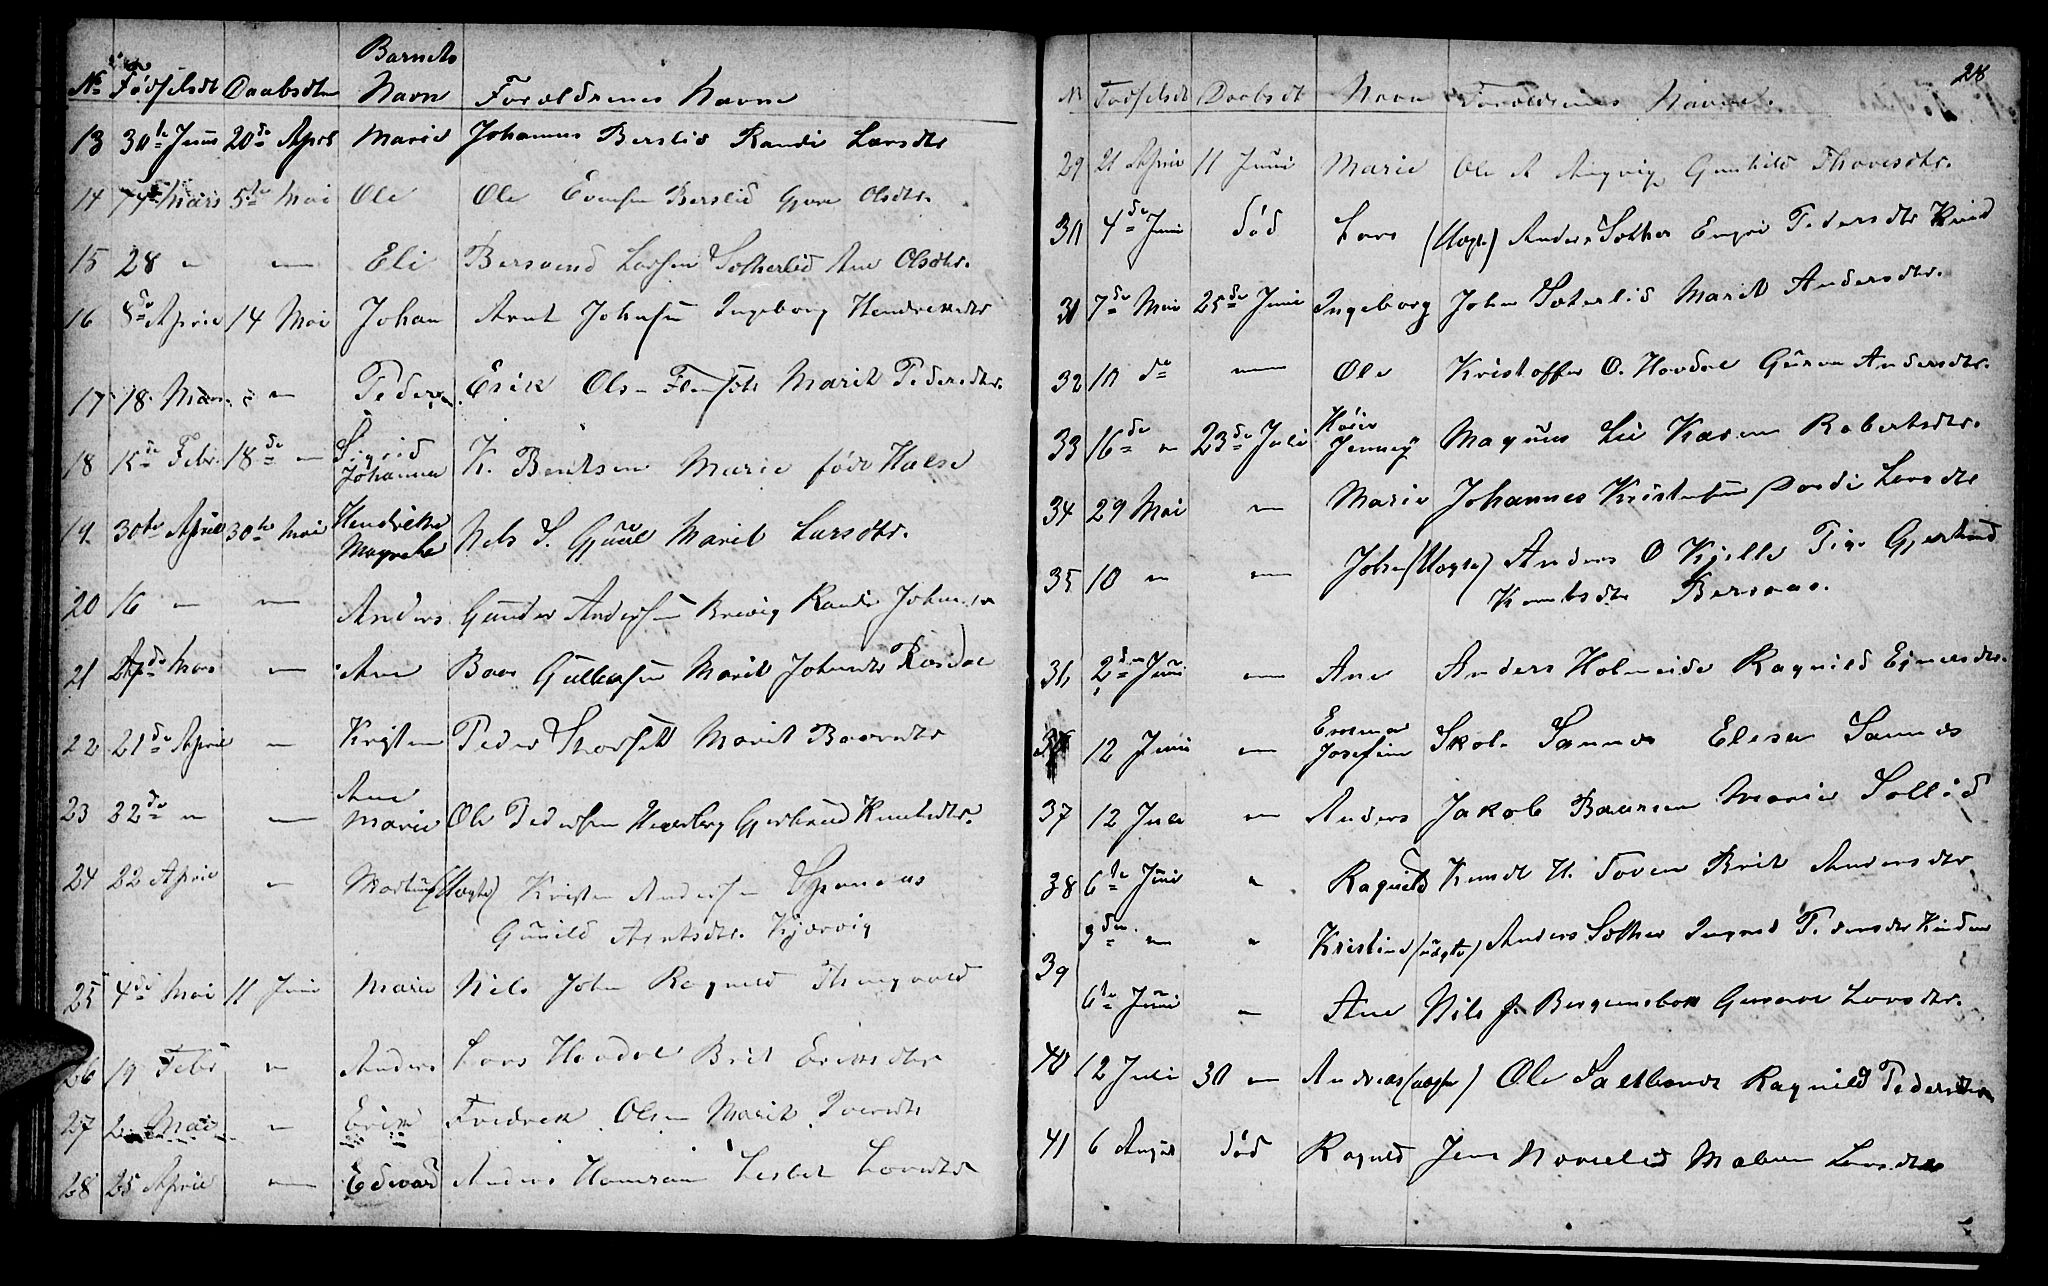 Barnets
No Fødselsdt Daabsdtn Navn Forældrenes Navne
13 30te Juni 20de April Marie Johannes Berslid Randi Larsdtr
14 Mars 5te Mai Ole Ole Evensen Berslid Gjøre Olsdtr.
15 28 " — Eli Bersvend Larsen Sætherlid Ane Olsdtr.
16 8de April 14 Mai Johan Arnt Johnsen Ingeborg Hendreksdtr
17 18 Mars " — Peder Erik Olsen Marit Pedersdtr.
Sigrid
18 15de Febr. 18de — Johanna K. Bentsen Marie føde Halse
Hendrikke
19. 30te April 30te Mai Magrehe Nels S. Gjüül Marit Larsdtr.
20 16 — — Anders Gunder Andersen Brevig Randi
21 de Mars — Ane Baar Gulleksen Marit Johnsdtr Røsdal
22 21de April — Kristen Peder Storset Marit Baarsdtr
Ane
23 22de " — Marie Ole Pedersen Gjertrud Knutsdtr.
24 22 April — (Uægte) Kristen Andersen
Gunild Arntsdtr. Kjørvig
25 4de Mai 11 Juni Marie Nils John Ragnild
26 19 Febr " Anders Lars Hovdal Brit Eriksdtr
27 2 Mai — Erik Fredrek Olsen Marit Iversdtr
28 25 April — Edvard Anders Lisbet Larsdtr
28
N Fødselsdt Daabsdt Navn Forældrenes Navne.
29 21 April 11 Juni Marie Ole A Angvig Gunhild Thoresdtr.
30 4de Juni død Lars (Uægte) Anders Sæther Engri Pedersdtr
31 7de Mai 25de Juni Ingeborg John Sæterlid Marit Andersdtr.
32 10 de — Ole Kristoffer O. Hovdal Guren Andersdtr.
33 16de " 23de Juli Jenney Magnus Lie Karen Robertsdtr.
34 29 Mai — Marie Johannes Kristensen Larsdtr
35 10 " — John (Uægte) Anders O Kjelle Pige Gjertrud
Knutsdtr Bersaas.
36 2den Juni — Ane Anders Holmeide Ragnild
Emma
12 Juni — Josefine Skol. Sannes Elisa Sannes
37 12 Juli — Anders Jakob Baarsen Marie Sollid
38 6te Juni " Ragnild Knudt H. Toven Brit Andersdtr
39 9den. — " Kristine (uægte) Anders Sæther Ingred Pedersdtr
6te Juni — Ane Nils J. Larsdtr.
40 12 Juli 30 — Andreas (uægte) Ole Saltbones Ragnild Pedersdtr
41 6 August død Ragnild Jens Malene Larsdtr